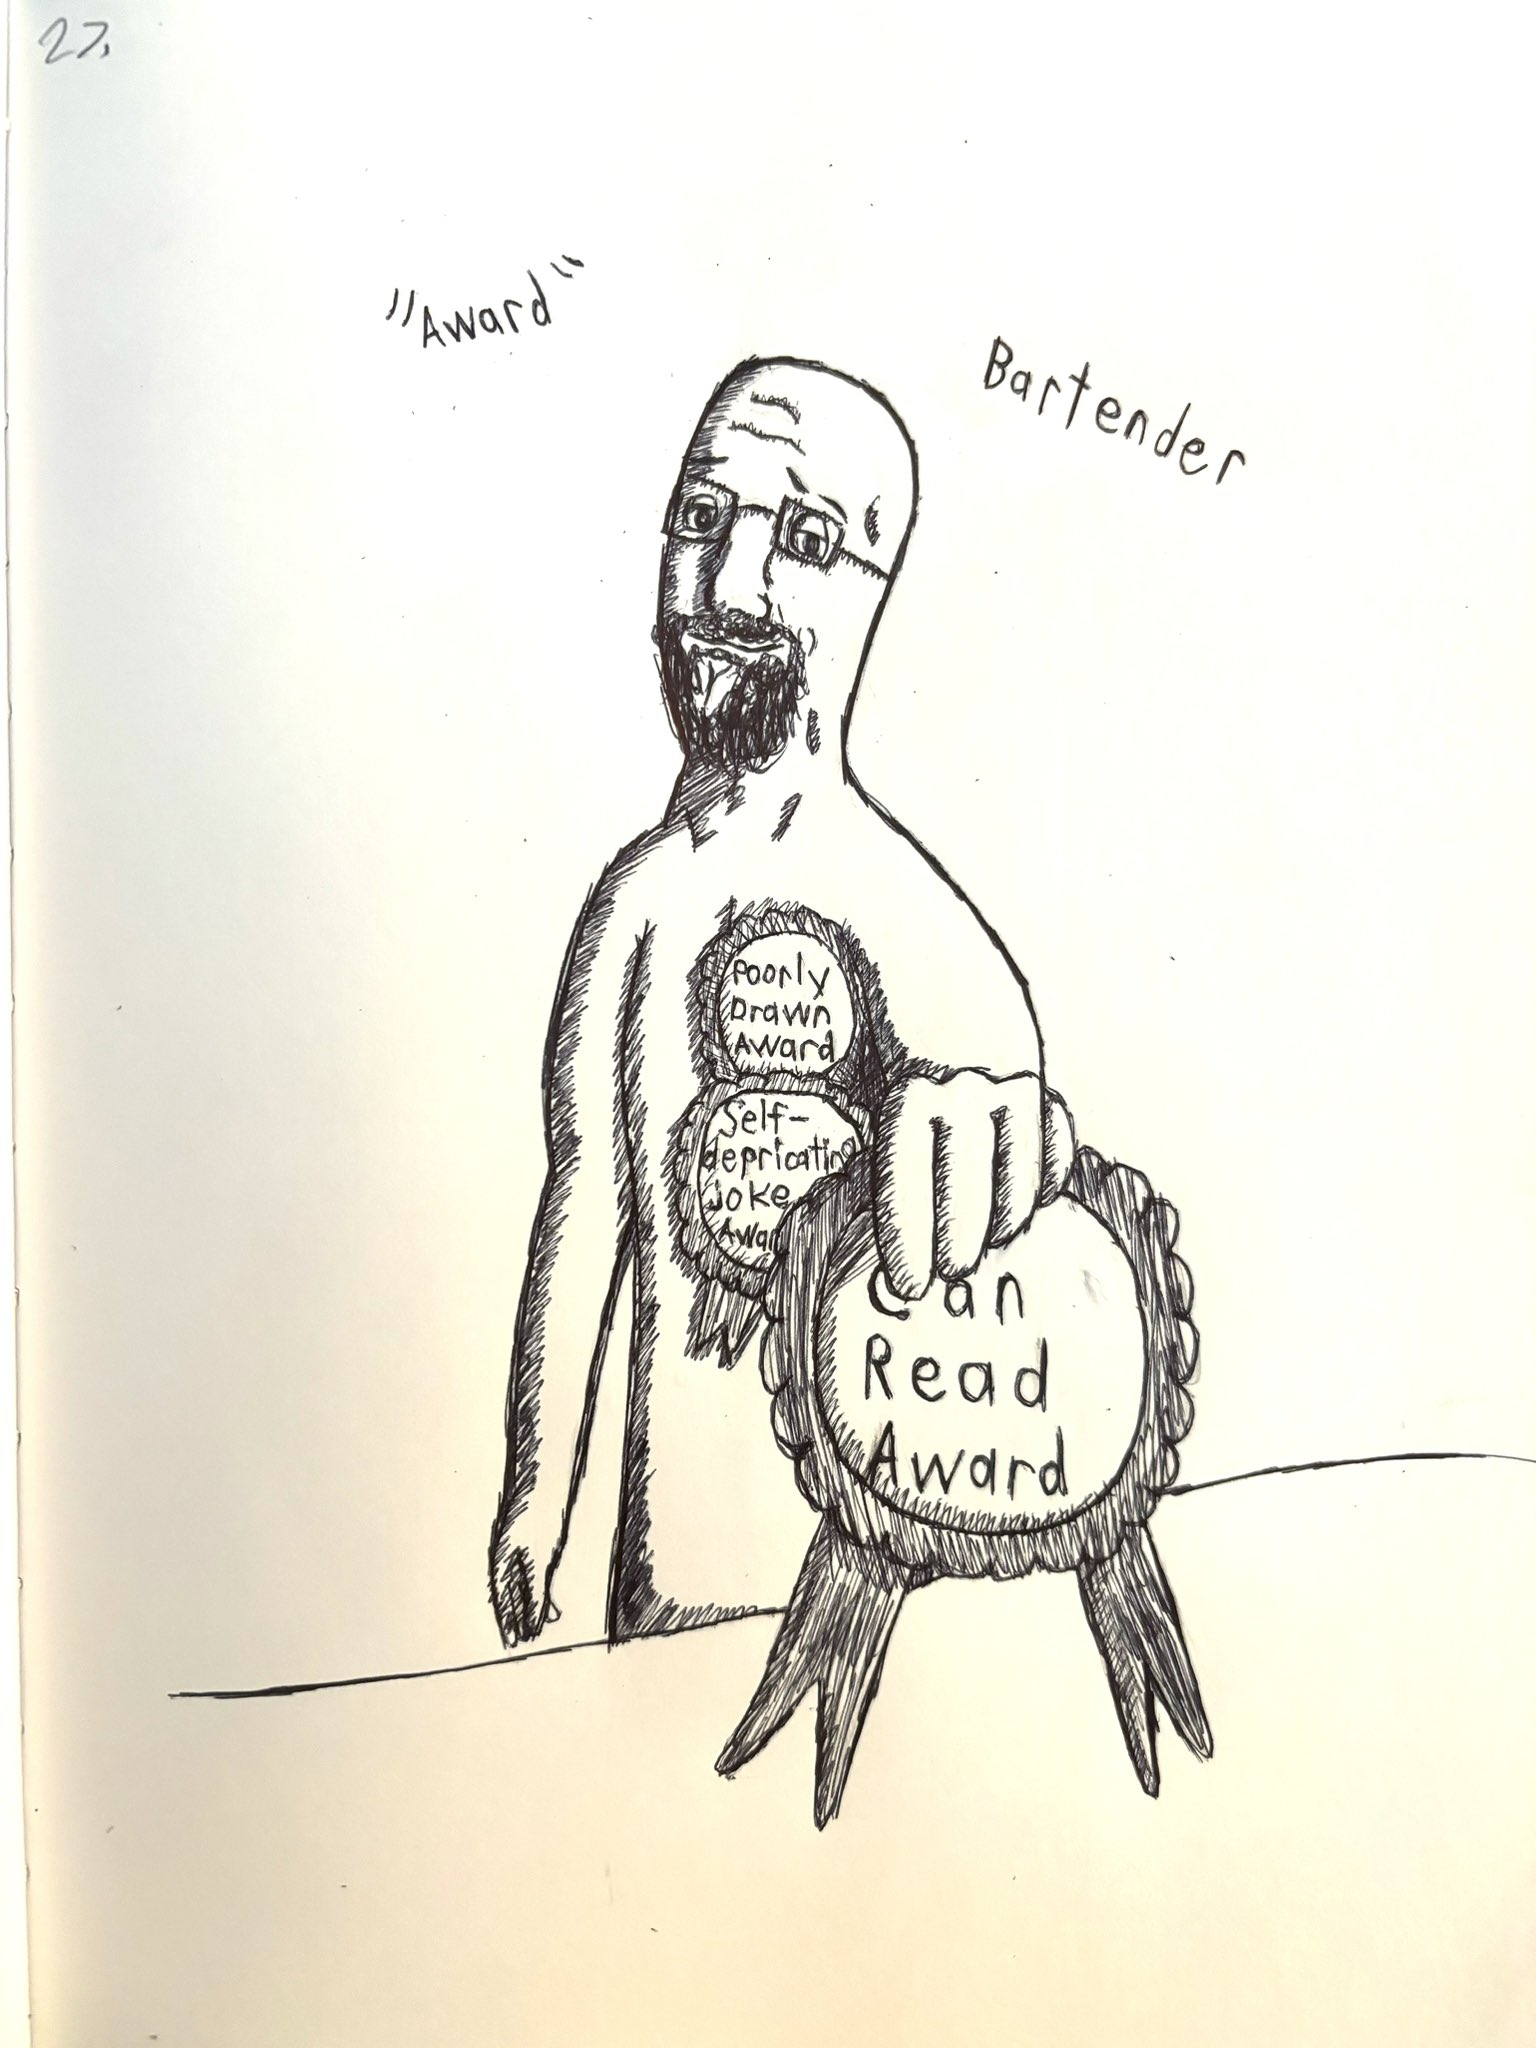 27.
"Award"
Bartender
Poorly
Drawn
Award
Self-
depricating
Joke
Awar
Can
Read
Award